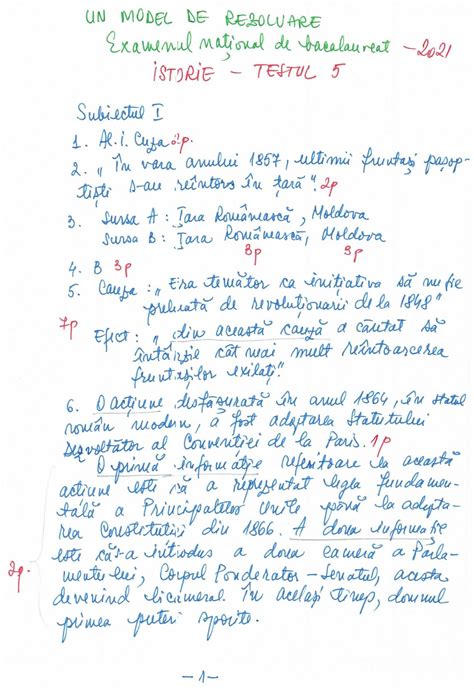 UN MODEL DE REZOLVARE
Examenul național de bacalaureat - 2021
ISTORIE - TESTUL 5
Subiectul I
1. Al. I. Cuza 2p.
2. „În vara anului 1857, ultimii fruntași pașop-
tiști s-au reîntors în țară". 2p
3. Sursa A : Țara Românească, Moldova
Sursa B : Țara Românească, Moldova
3p 3p
4. B 3p
5. Cauza : „Era temător ca inițiativa să nu fie
preluată de revoluționarii de la 1848"
7p
Efect : „din această cauză a căutat să
întârzie cât mai mult reîntoarcerea
fruntașilor exilați."
6. O acțiune desfășurată în anul 1864, în statul
român modern, a fost adoptarea Statutului
Dezvoltător al Convenției de la Paris. 1p
O primă informație referitoare la această
acțiune este că a reprezentat legea fundamen-
tală a Principatelor Unite până la adopta-
rea Constituției din 1866. A doua informație
este că s-a introdus a doua cameră a Parla-
mentului, Corpul Ponderator - Senatul, acesta
2p.
devenind bicameral. În același timp, domnul
primea puteri sporite.
- 1 -